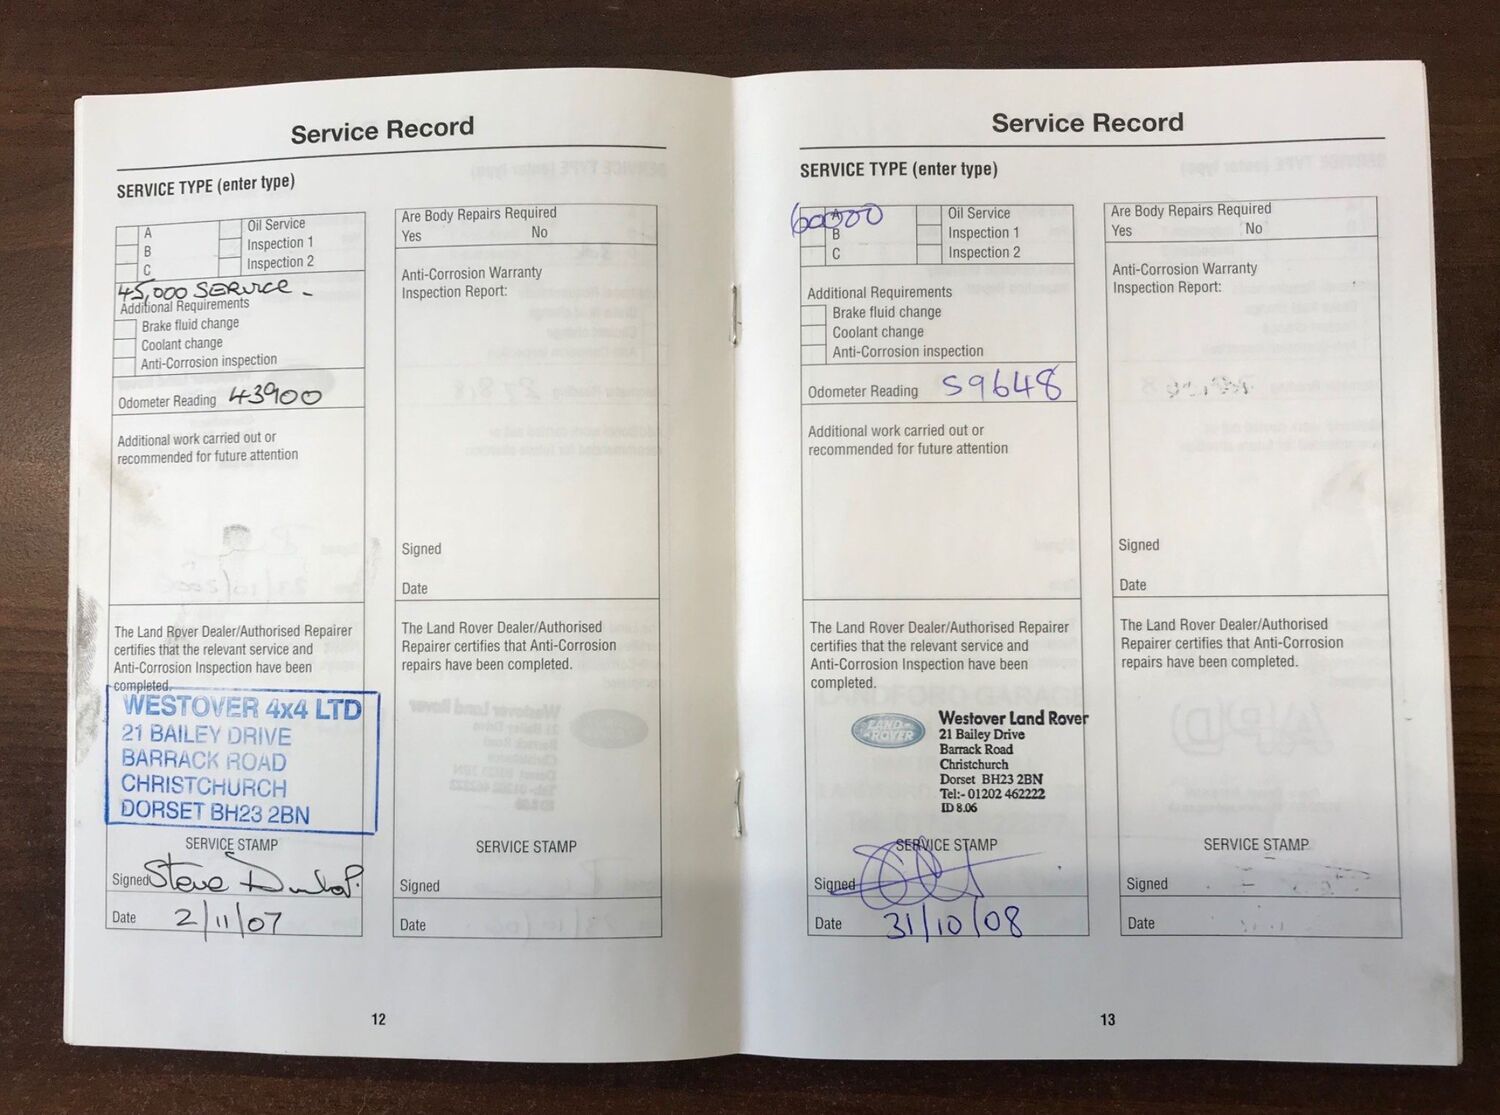 Service Record
SERVICE TYPE (enter type)
A
B
C
Oil Service
Inspection 1
Inspection 2
45,000 SERVICE -
Additional Requirements
Brake fluid change
Coolant change
Anti-Corrosion inspection
Odometer Reading 43900
Additional work carried out or
recommended for future attention
The Land Rover Dealer/Authorised Repairer
certifies that the relevant service and
Anti-Corrosion Inspection have been
completed.
WESTOVER 4x4 LTD
21 BAILEY DRIVE
BARRACK ROAD
CHRISTCHURCH
DORSET BH23 2BN
SERVICE STAMP
Signed Steve Dunlop.
Date 2/11/07
Are Body Repairs Required
Yes No
Anti-Corrosion Warranty
Inspection Report:
Signed
Date
The Land Rover Dealer/Authorised
Repairer certifies that Anti-Corrosion
repairs have been completed.
SERVICE STAMP
Signed
Date
12
Service Record
SERVICE TYPE (enter type)
60000
A
B
C
Oil Service
Inspection 1
Inspection 2
Additional Requirements
Brake fluid change
Coolant change
Anti-Corrosion inspection
Odometer Reading 59648
Additional work carried out or
recommended for future attention
The Land Rover Dealer/Authorised Repairer
certifies that the relevant service and
Anti-Corrosion Inspection have been
completed.
LAND
ROVER
Westover Land Rover
21 Bailey Drive
Barrack Road
Christchurch
Dorset BH23 2BN
Tel:- 01202 462222
ID 8.06
SERVICE STAMP
Signed
Date 31/10/08
Are Body Repairs Required
Yes No
Anti-Corrosion Warranty
Inspection Report:
Signed
Date
The Land Rover Dealer/Authorised
Repairer certifies that Anti-Corrosion
repairs have been completed.
SERVICE STAMP
Signed
Date
13